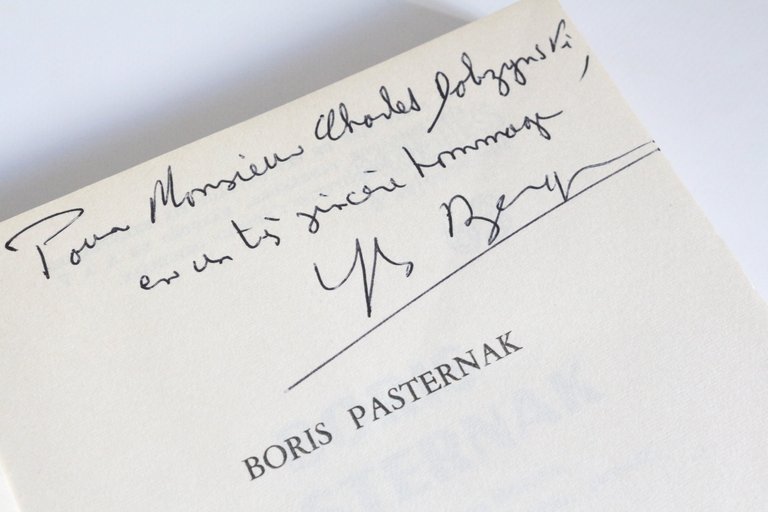 Pour Monsieur Charles Dobzynski,
en un très sincère hommage
Yves Berger
BORIS PASTERNAK